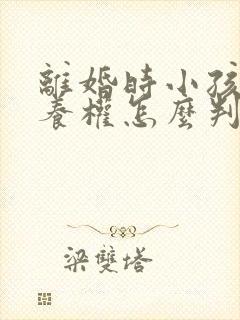 離婚時小孩
養權怎麼判
梁雙塔